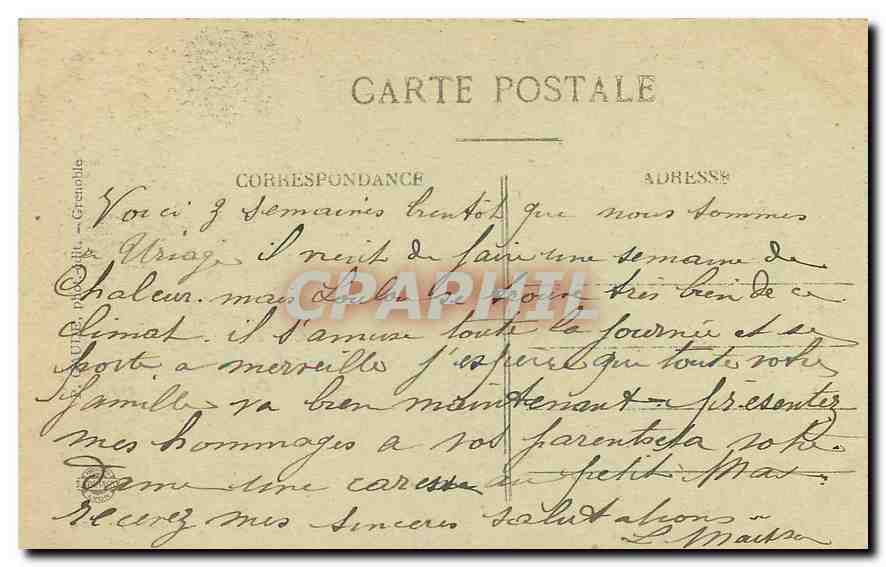 CARTE POSTALE
CORRESPONDANCE
ADRESSE
phot. édit. - Grenoble
Voici 3 semaines bientôt que nous sommes
a Uriage il vient de faire une semaine de
Chaleur. mais Loulou se trouve très bien de ce
climat. il s'amuse toute la journée et se
porte a merveille j'espère que toute votre
famille va bien maintenant - présentez
mes hommages a vos parents et a votre
dame une caresse au petit Max
recevez mes sincères salutations -
L.
CAPHIL